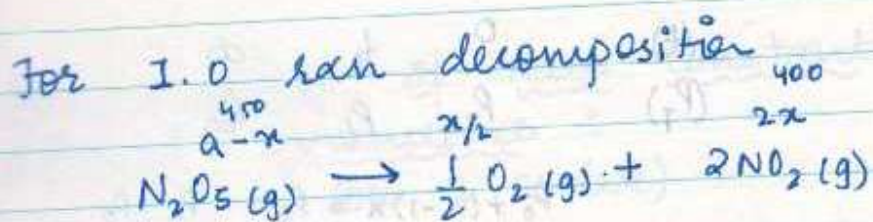 For I.O rxn decomposition
450 400
a-x x/2 2x
N₂O₅(g) → ½ O₂(g) + 2NO₂(g)